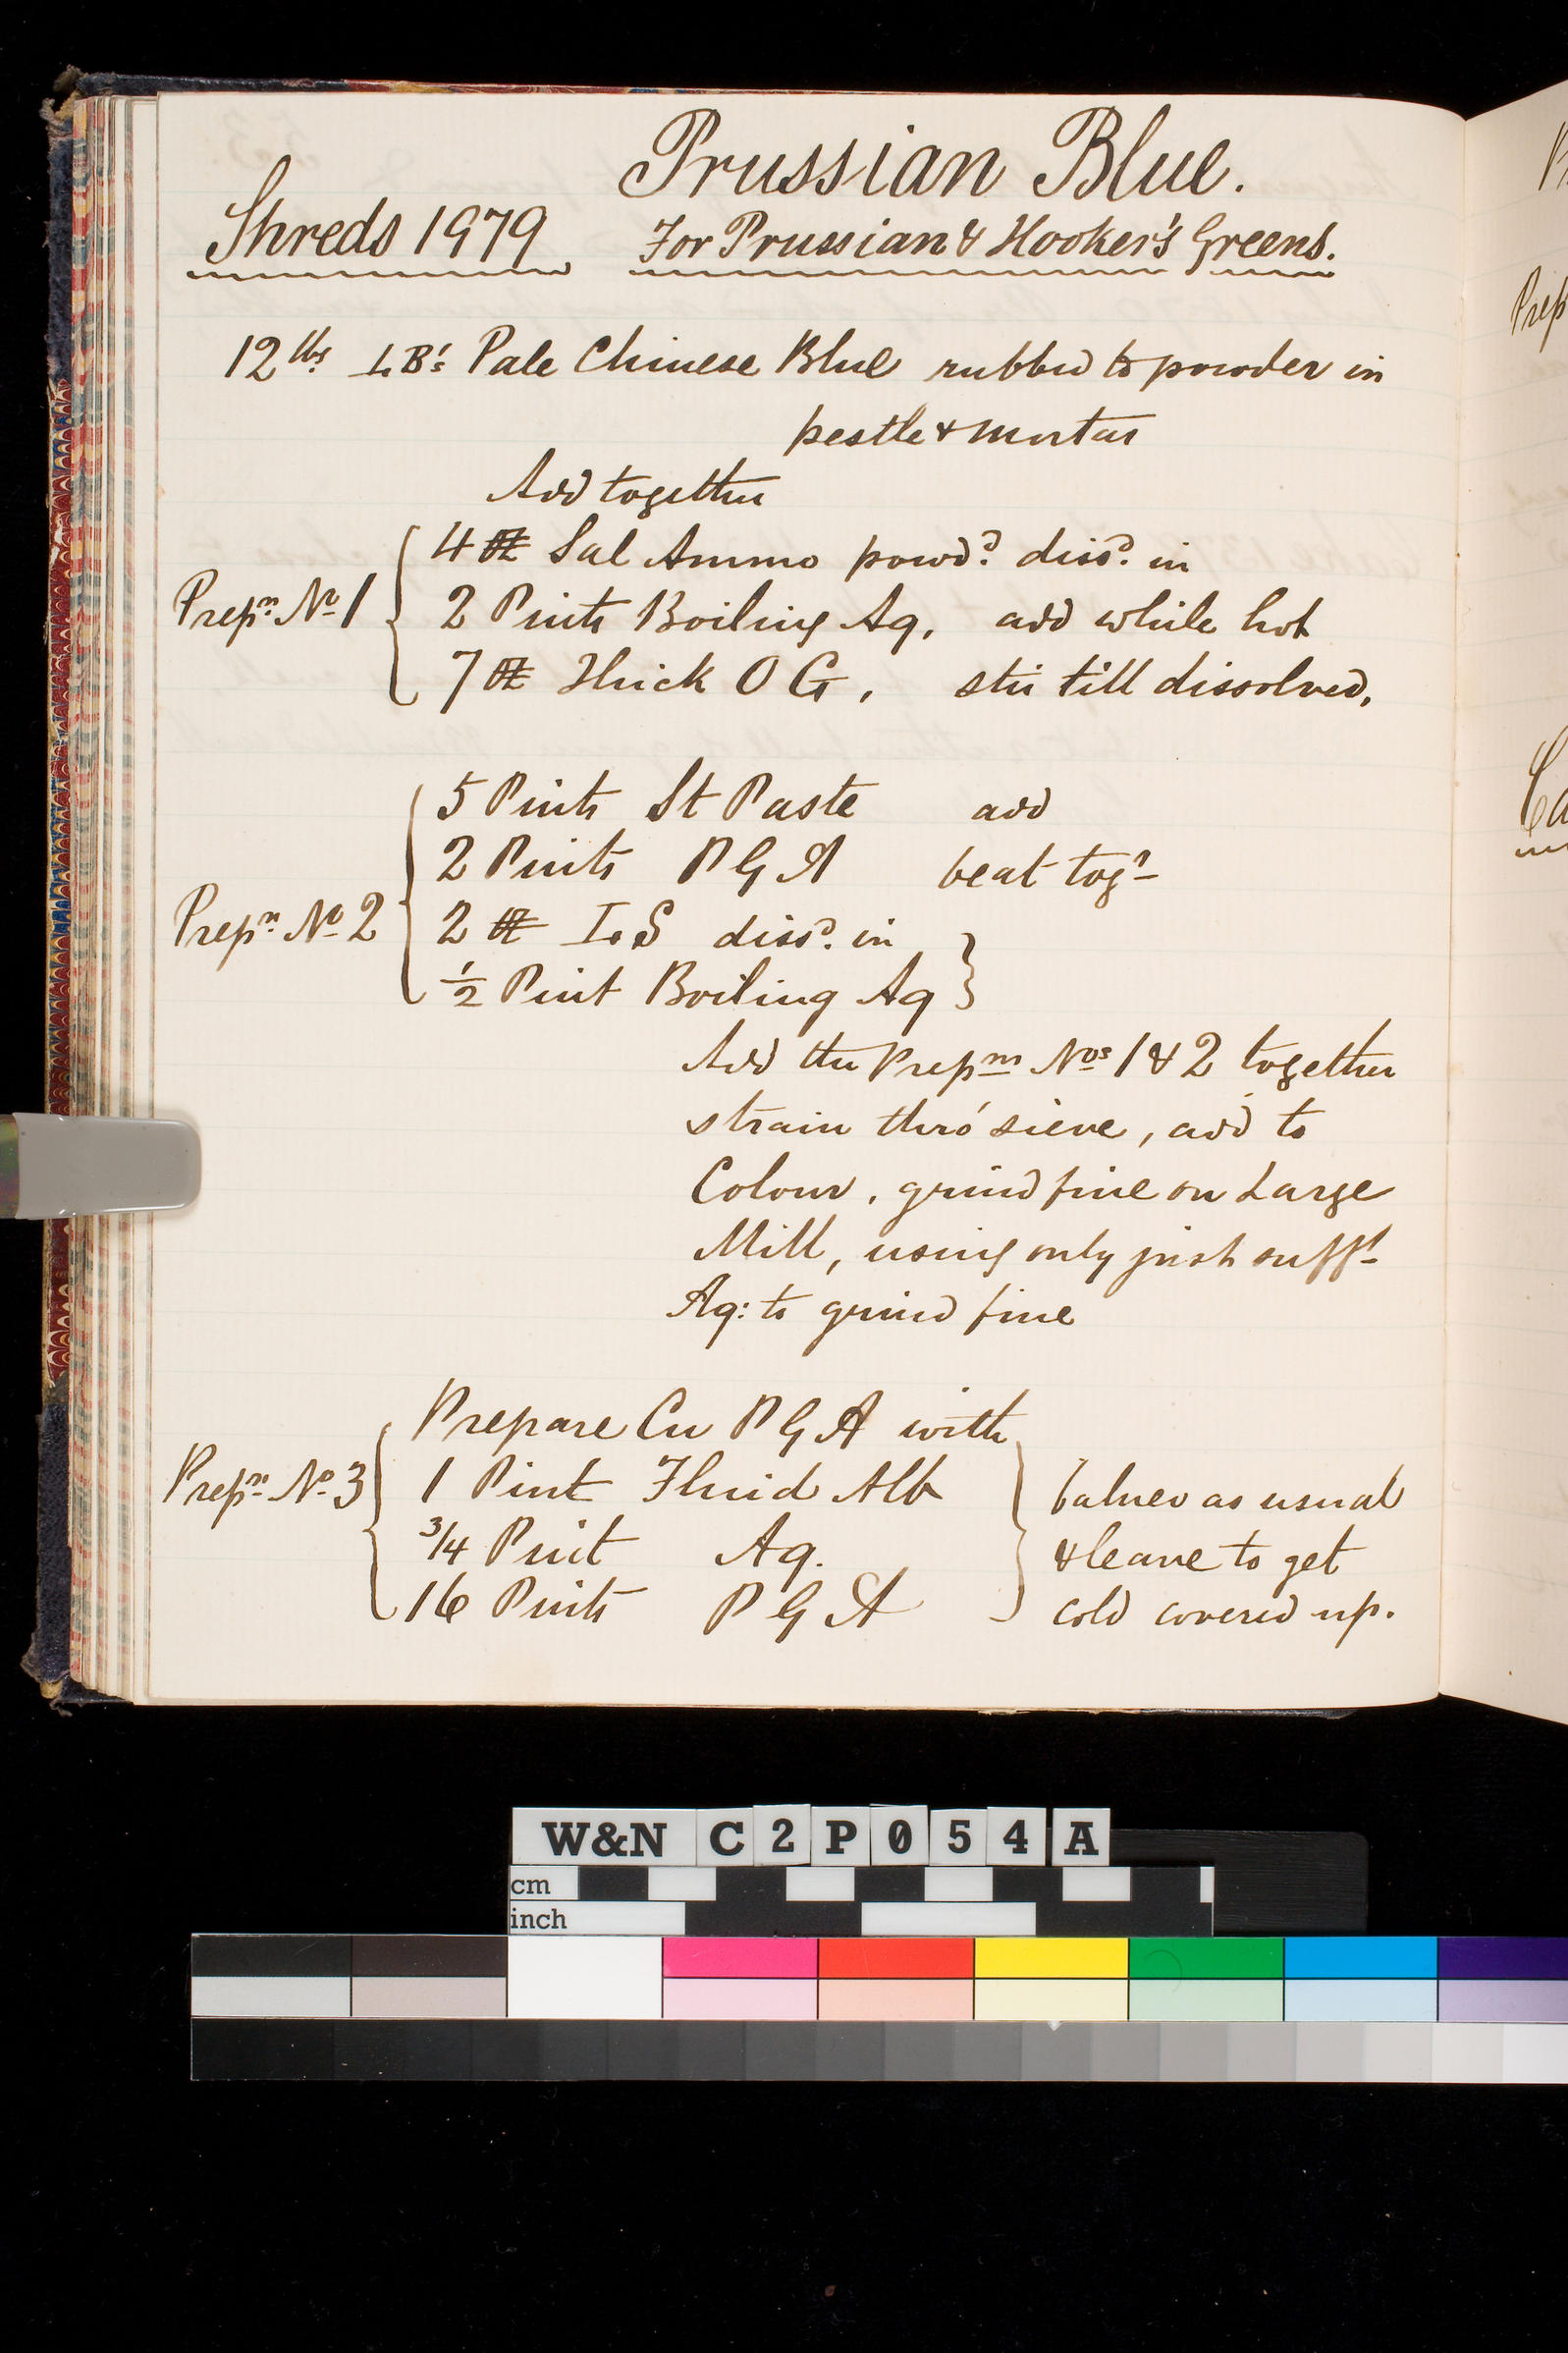 Prussian Blue.
Shreds 1979 For Prussian & Hooker's Greens.
12 lbs L.B's Pale Chinese Blue rubbed to powder in
pestle & mortar
Add together
Prepn No 1
4 oz Sal Ammo powd. diss. in
2 Pints Boiling Aq, add while hot
7 oz Thick O G, stir till dissolved,
Prepn No 2
5 Pints St Paste add
2 Pints P G A beat togr
2 oz I.S dissd. in
1/2 Pint Boiling Aq
Add the Prepns Nos 1 & 2 together
strain thro' sieve, add to
Colour, grind fine on Large
Mill, using only just sufft
Aq: to grind fine
Prepn No 3
Prepare Cu P G A with
1 Pint Fluid Alb
3/4 Pint Aq.
16 Pints P G A
balneo as usual
& leave to get
cold covered up.
Prep
Ca
W&N C2P054A
cm
inch